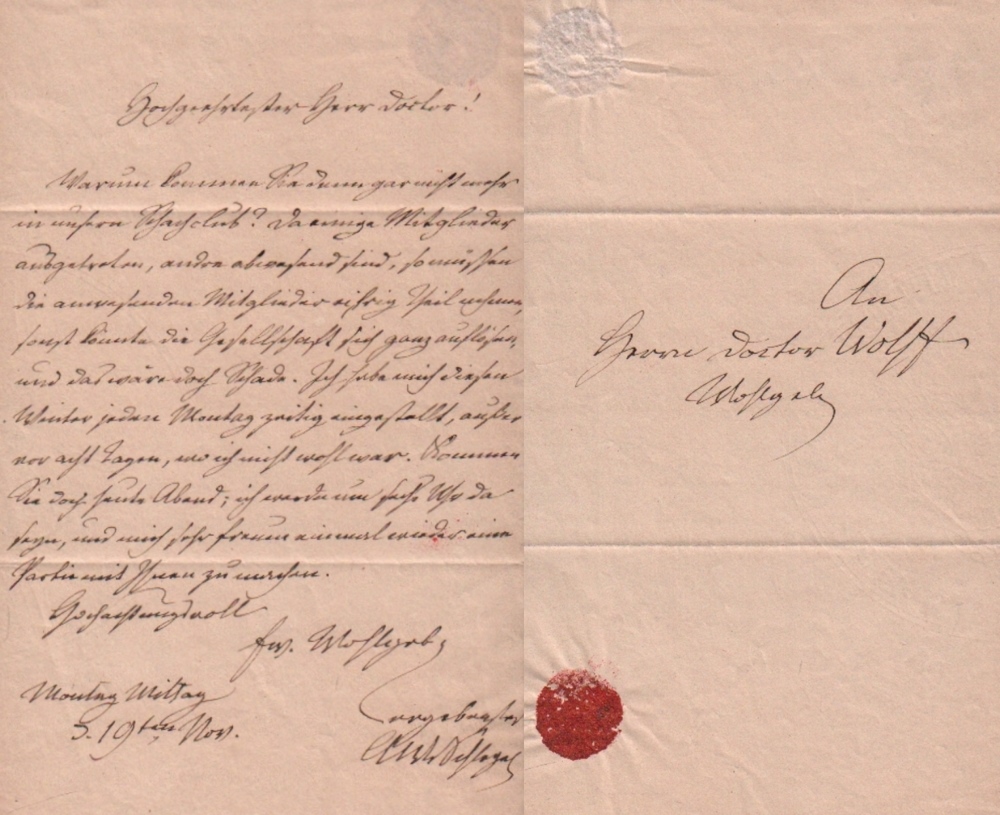 Hochgeehrtester Herr Doctor!
Warum kommen Sie denn gar nicht mehr
in unsern Schachclub? Da einige Mitglieder
ausgetreten, andre abwesend sind, so müssen
die anwesenden Mitglieder eifrig Theil nehmen,
sonst könnte die Gesellschaft sich ganz auflösen,
und das wäre doch Schade. Ich habe mich diesen
Winter jeden Montag zeitig eingestellt, außer
vor acht Tagen, wo ich nicht wohl war. Kommen
Sie doch heute Abend; ich werde um sechs Uhr da
seyn, und mich sehr freuen einmal wieder eine
Partie mit Ihnen zu machen.
Hochachtungsvoll
Ew. Wohlgeb
Montag Mittag
d. 19ten Nov.
ergebenster
AWvSchlegel
An
Herrn Doctor Wolff
Wohlgeb